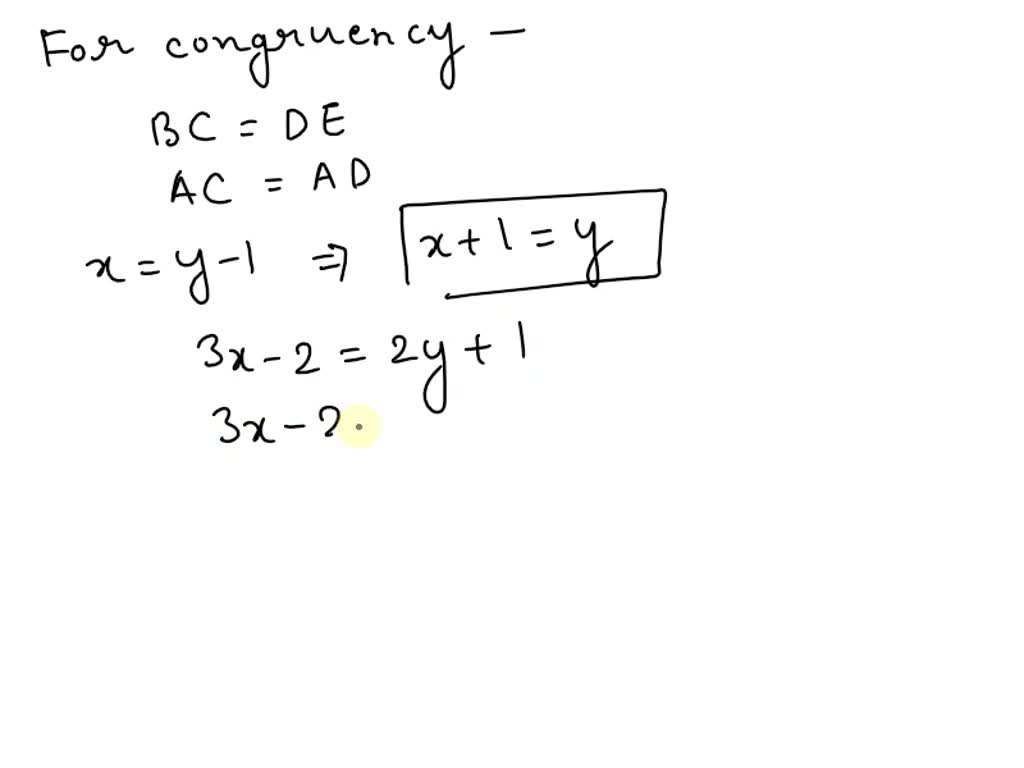 For congruency -
BC = DE
AC = AD
x = y - 1 ⇒ x + 1 = y
3x - 2 = 2y + 1
3x - 2